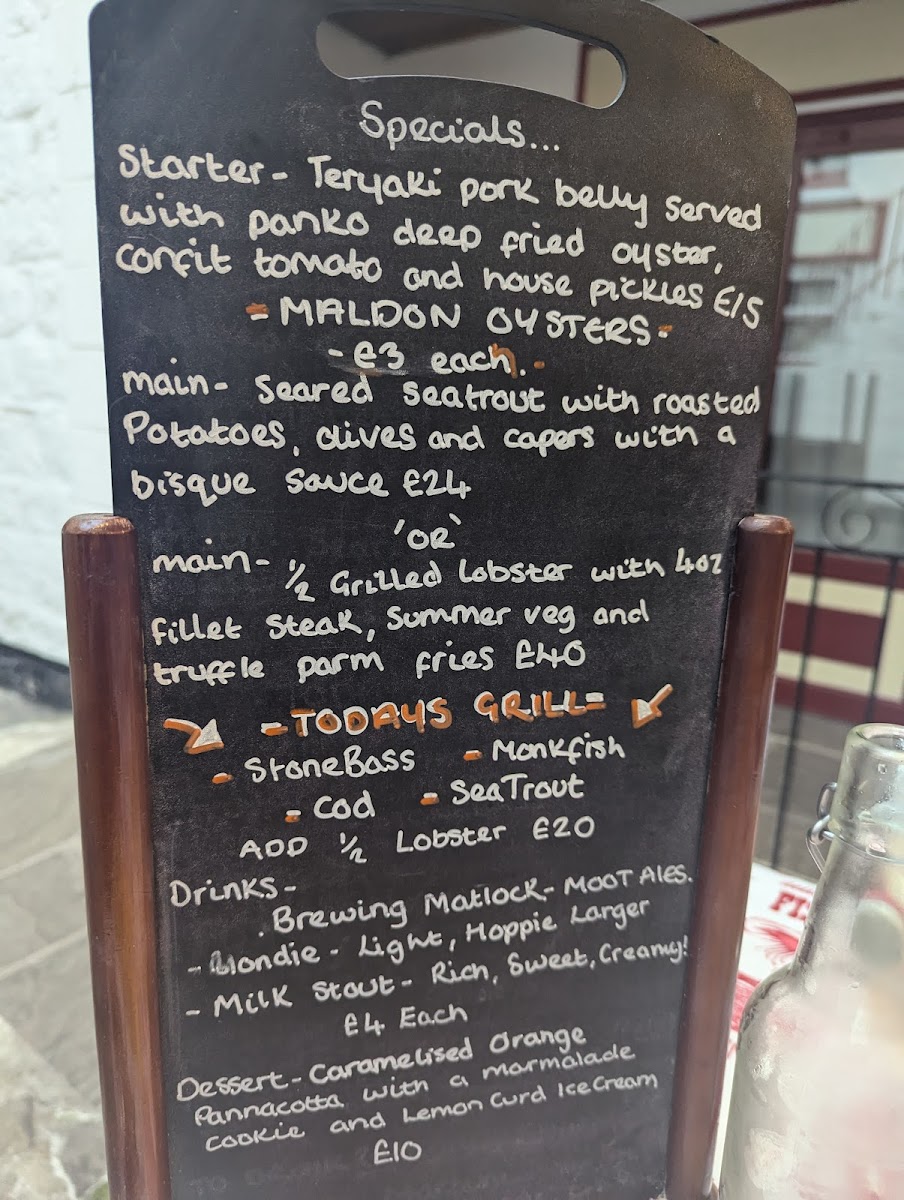 Specials...
Starter- Teryaki pork belly served
with panko deep fried oyster,
confit tomato and house pickles £15
- MALDON OYSTERS -
- £3 each. -
main- Seared Seatrout with roasted
Potatoes, olives and capers with a
bisque sauce £24
'OR'
main- 1/2 Grilled Lobster with 4oz
fillet steak, Summer veg and
truffle parm fries £40
-TODAYS GRILL-
- StoneBass - Monkfish
- Cod - SeaTrout
ADD 1/2 Lobster £20
Drinks-
. Brewing Matlock- MOOT Ales.
- Blondie - Light, Hoppie Larger
- Milk Stout- Rich, Sweet, Creamy!
£4 Each
Dessert- Caramelised Orange
Pannacotta with a marmalade
cookie and Lemon Curd Ice Cream
£10